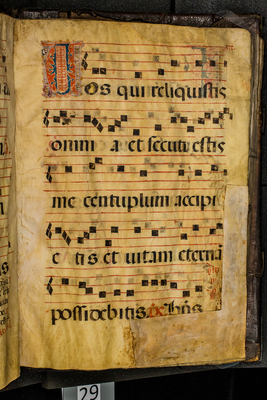 Uos qui reliquistis
omni a et secuti estis
me centuplum accipi
e tis et uitam eternā
possidebitis. Bn̄s
29